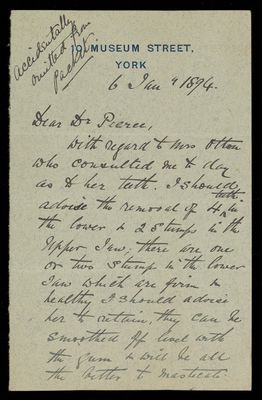 Accidentally
omitted from
packet.
10, MUSEUM STREET,
YORK
6 Jany 1894.
Dear Dr Pierce,
With regard to Mrs Otton
who consulted me to day
as to her teeth. I should
advise the removal of 4 teeth in
the lower & 2 stumps in the
Upper Jaw; there are one
or two stumps in the lower
Jaw which are firm &
healthy I should advise
her to retain, they can be
smoothed off level with
the gum & will be all
the better to masticate